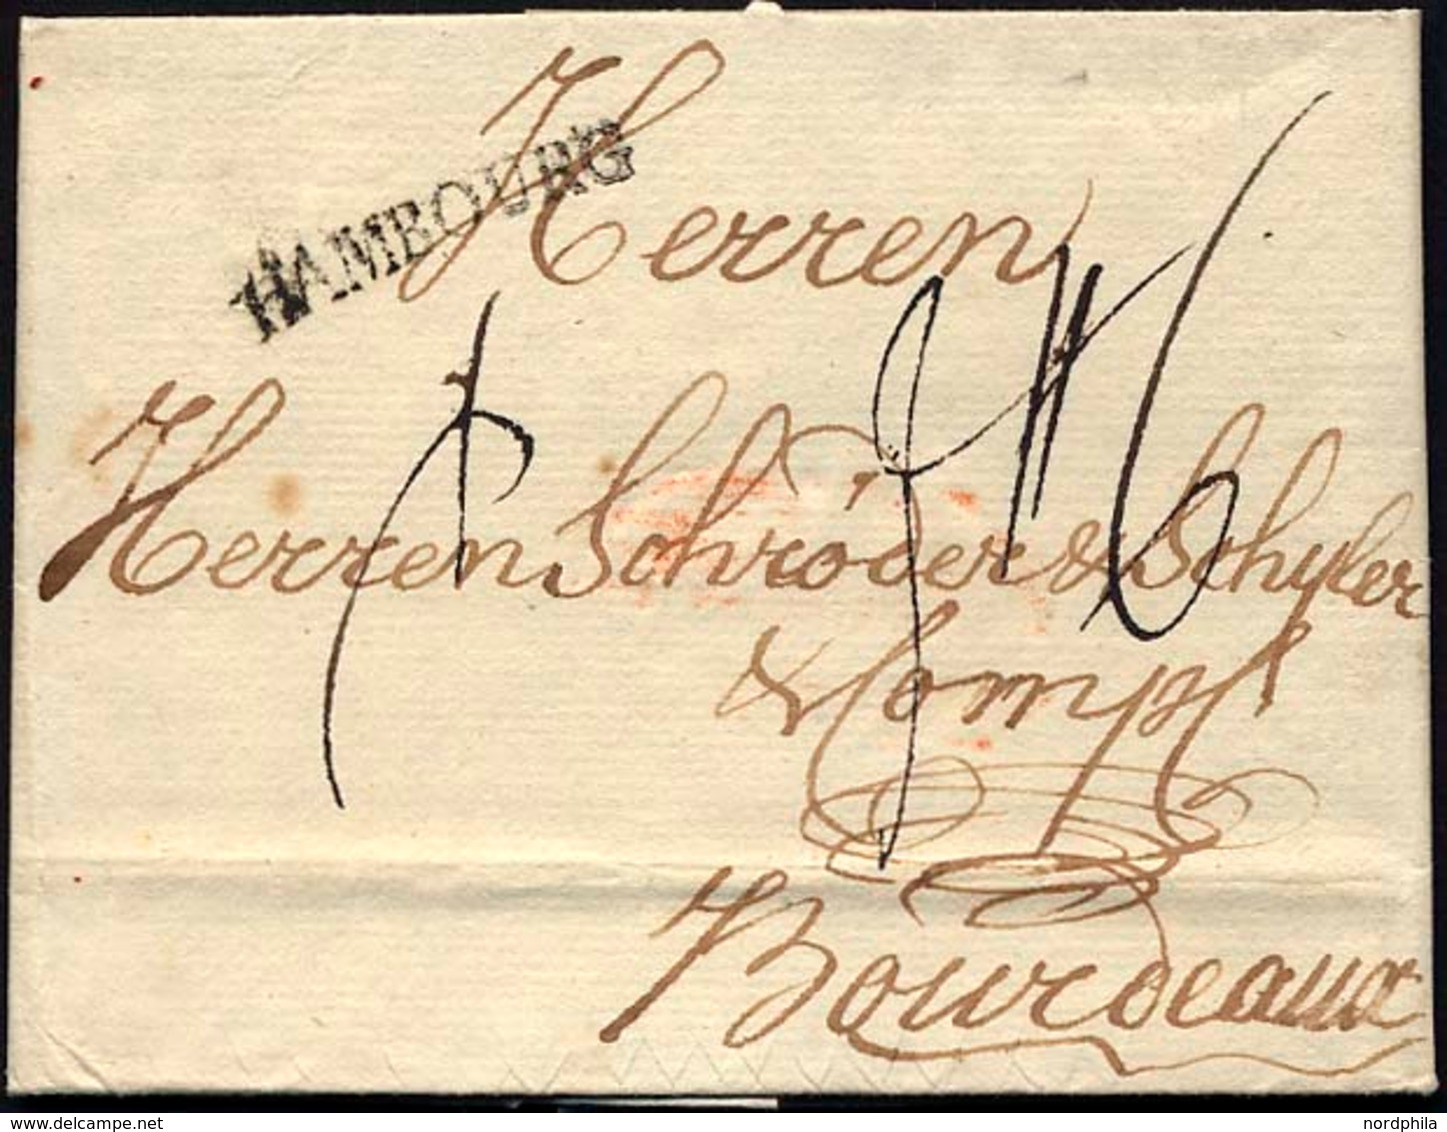 Herren
HAMBOURG
Herren Schröder & Schyler
& Comp
Bourdeaux
www.delcampe.net
nordphila